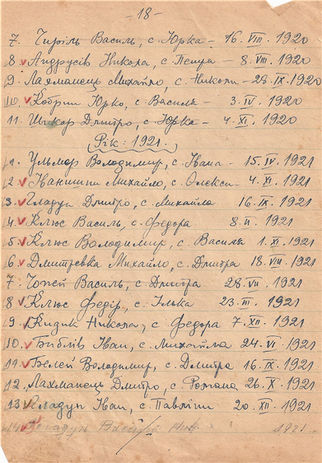 - 18 -
7. Чиріль Василь, с. Юрка - 16. VIII. 1920
8 v Андрусів Микола, с. Петра - 8. VIII. 1920
9. Михайло, с. Николи - 23. IX. 1920
10. v Кобрин Юрко, с. Василя - 3. IV. 1920
11. Дмитро, с. Юрка - 4. XI. 1920
Рік: 1921.
1. Володимир, с. Івана - 15. IV. 1921
2 v Михайло, с. Олекси - 4. XI. 1921
3. v Сладун Дмитро, с. Михайла 16. IX. 1921
4 v Клюс Василь, с. Федора 8. II. 1921
5 v Клюс Володимир, с. Василя 1. XI. 1921
6 v Михайло, с. Дмитра 18. VIII. 1921
7. Василь, с. Дмитра 28. VII. 1921
8 v Клюс Федір, с. Ілька 23. III. 1921
9 v Микола, с. Федора 7. XII. 1921
10. v Біблів Іван, с. Михайла 24. VI. 1921
11 v Белей Володимир, с. Дмитра 16. IX. 1921
12. v Лахманець Дмитро, с. Романа 26. X. 1921
13 v Сладун Іван, с. Павліни 20. XII. 1921
1921